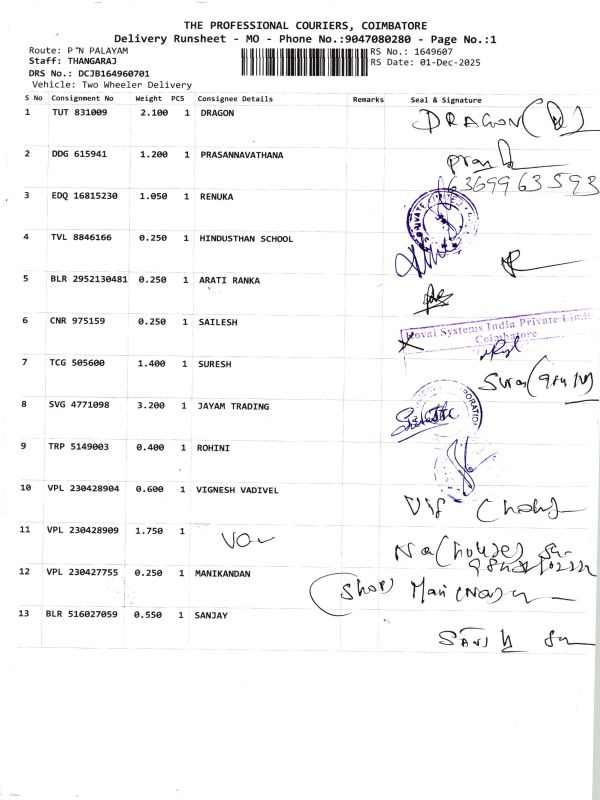 THE PROFESSIONAL COURIERS, COIMBATORE
Delivery Runsheet - MO - Phone No.:9047080280 - Page No.:1
Route: P~N PALAYAM RS No.: 1649607
Staff: THANGARAJ RS Date: 01-Dec-2025
DRS No.: DCJB164960701
Vehicle: Two Wheeler Delivery
S No Consignment No Weight PCS Consignee Details Remarks Seal & Signature
1 TUT 831009 2.100 1 DRAGON DRAGON
2 DDG 615941 1.200 1 PRASANNAVATHANA
6369963593
3 EDQ 16815230 1.050 1 RENUKA
PRIVATE LIMITED
4 TVL 8846166 0.250 1 HINDUSTHAN SCHOOL
5 BLR 2952130481 0.250 1 ARATI RANKA
6 CNR 975159 0.250 1 SAILESH
Kovai Systems India Private Limit
Coimbatore
7 TCG 505600 1.400 1 SURESH
8 SVG 4771098 3.200 1 JAYAM TRADING
9 TRP 5149003 0.400 1 ROHINI
10 VPL 230428904 0.600 1 VIGNESH VADIVEL
11 VPL 230428909 1.750 1
12 VPL 230427755 0.250 1 MANIKANDAN
13 BLR 516027059 0.550 1 SANJAY